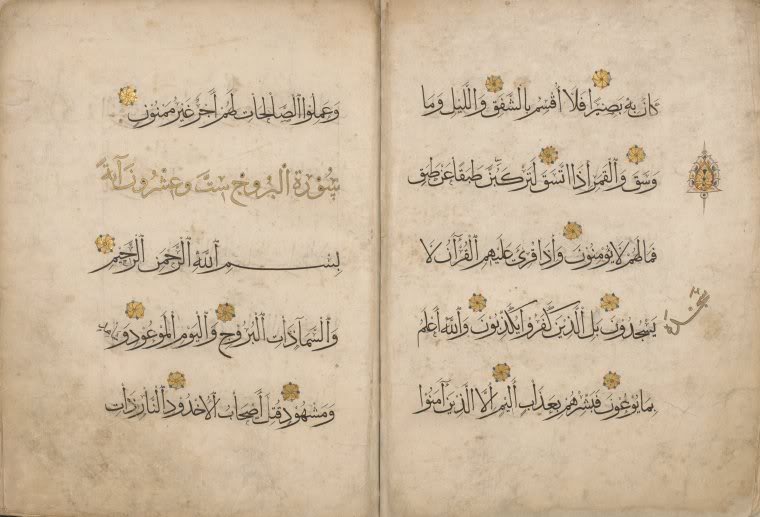 كان به بصيرا فلا أقسم بالشفق والليل وما
وسق والقمر إذا اتسق لتركبن طبقا عن طبق
فما لهم لا يؤمنون وإذا قرئ عليهم القرآن لا
يسجدون بل الذين كفروا يكذبون والله أعلم
سجدة
بما يوعون فبشرهم بعذاب أليم إلا الذين آمنوا
وعملوا الصالحات لهم أجر غير ممنون
سورة البروج ست وعشرون آية
بسم الله الرحمن الرحيم
والسماء ذات البروج واليوم الموعود وشاهد
ومشهود قتل أصحاب الأخدود النار ذات